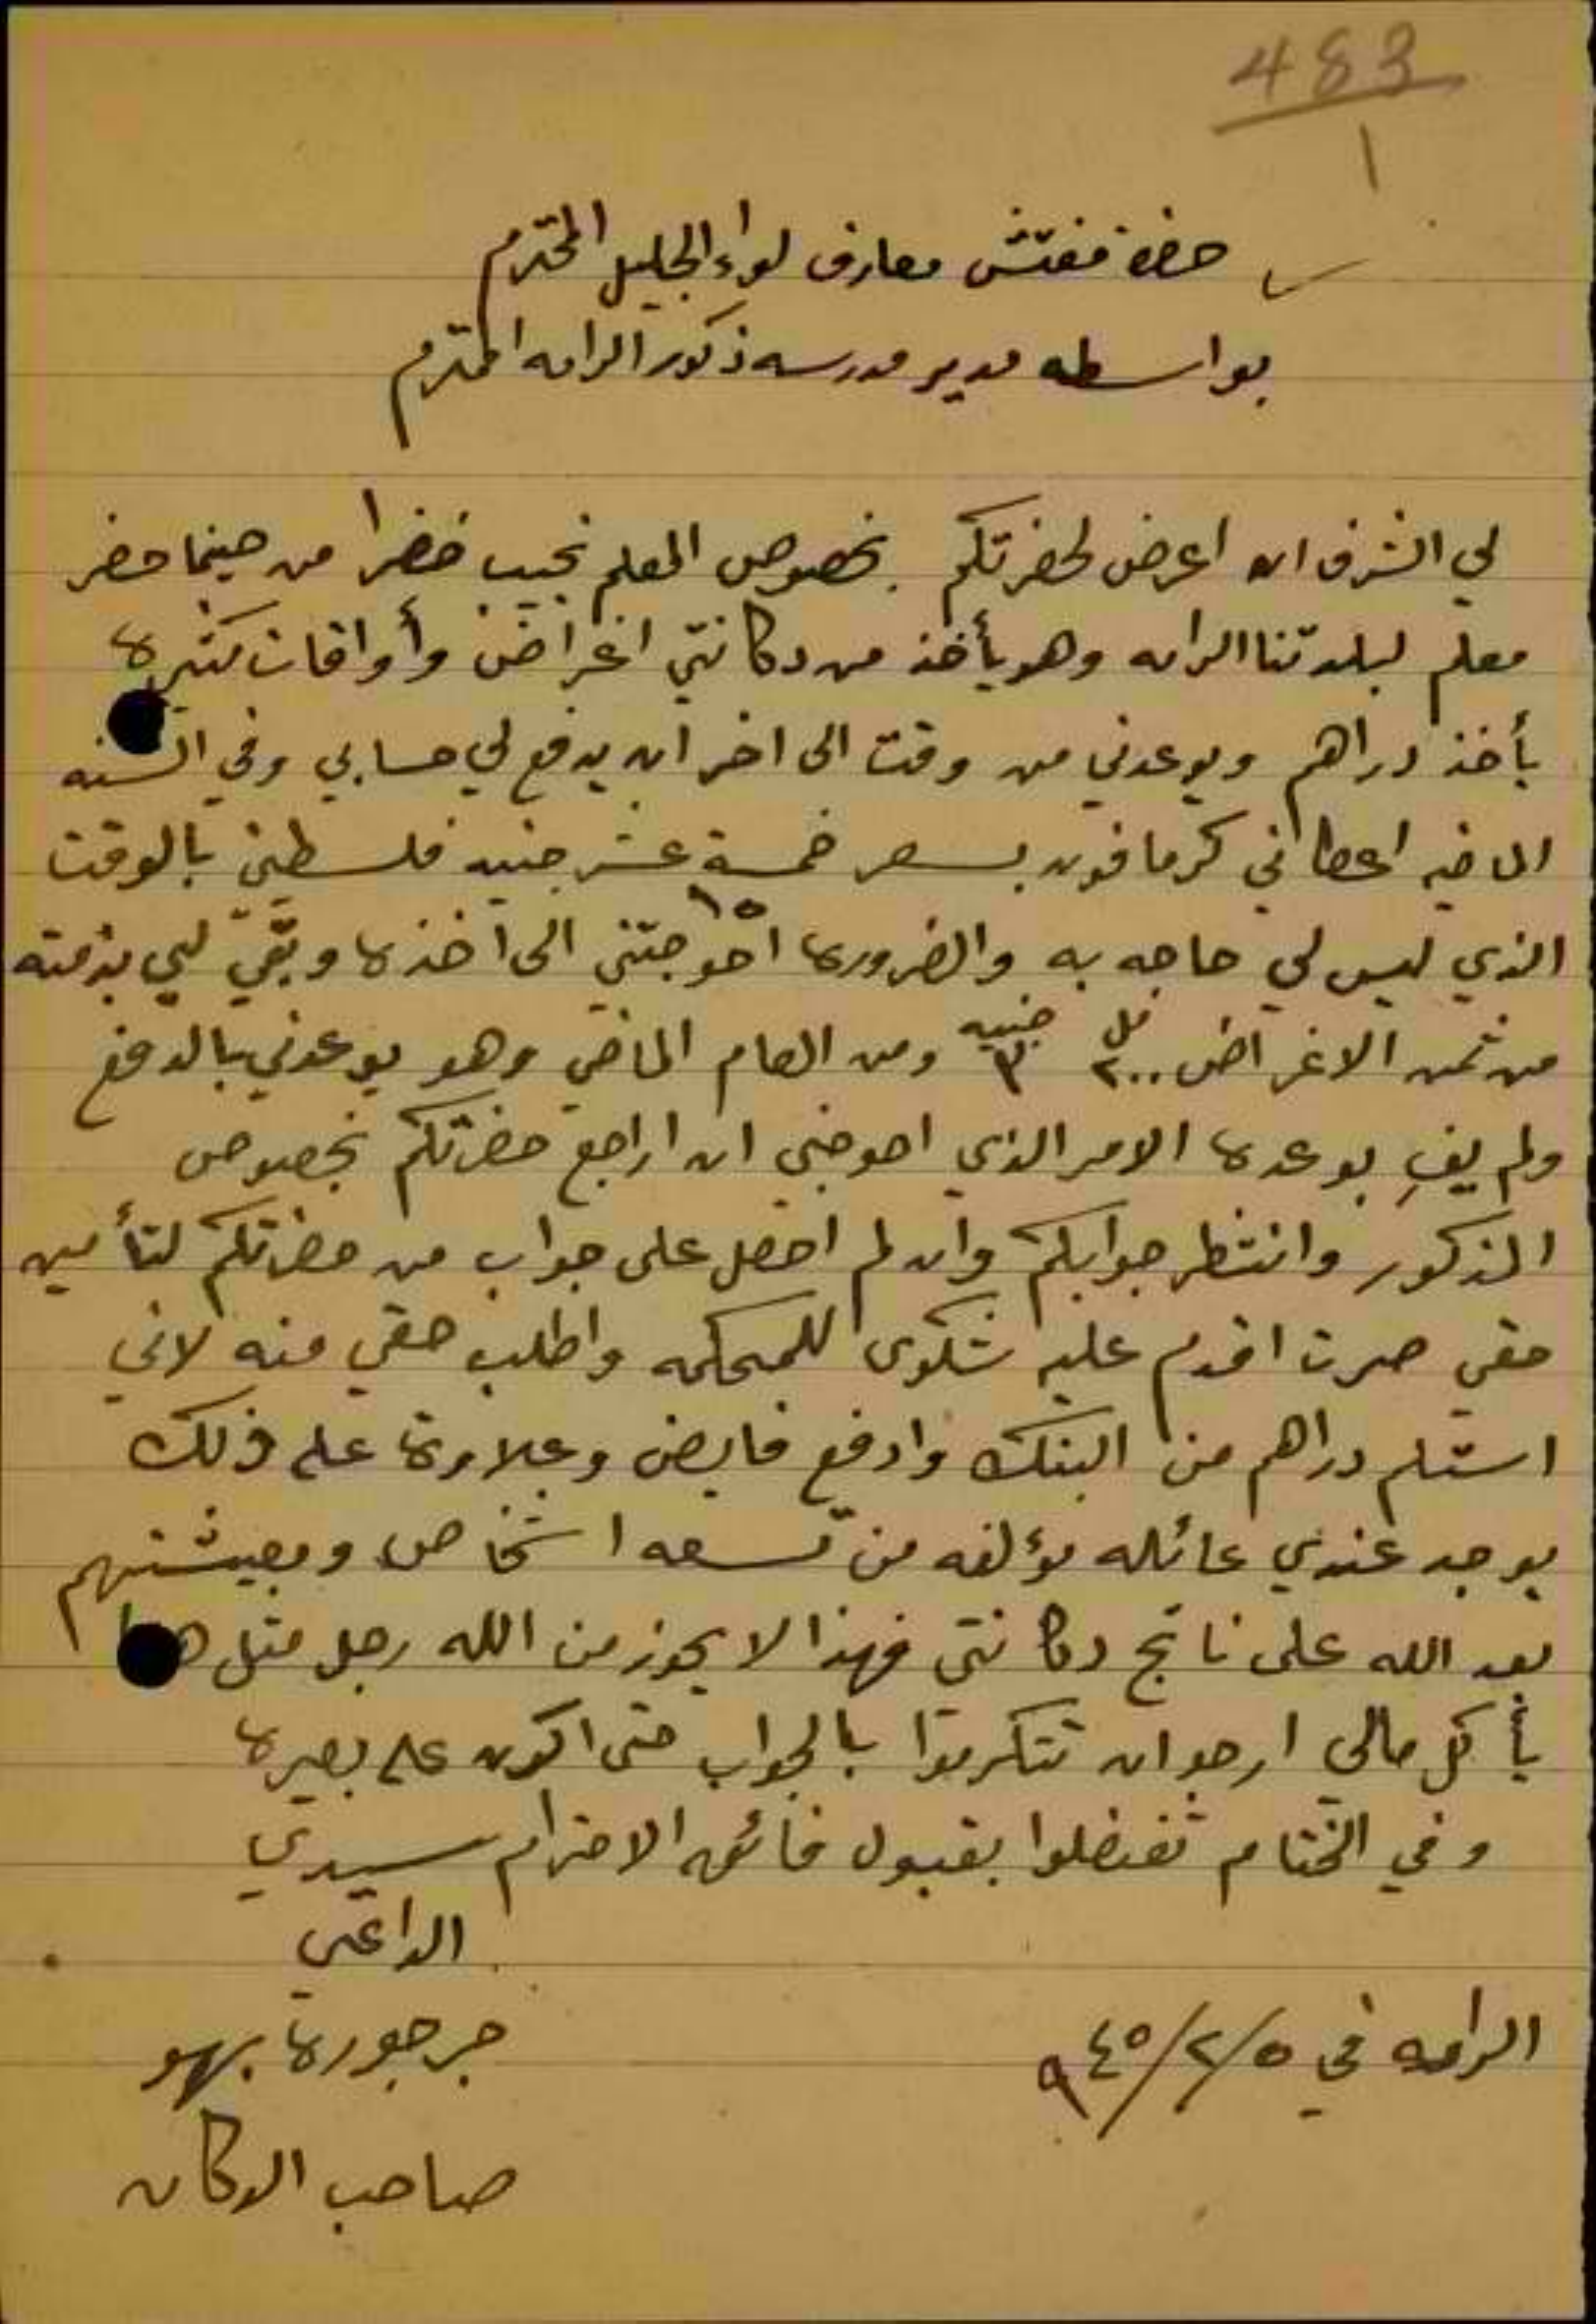 483
1
حضرة مفتش معارف لواء الجليل المحترم
بواسطه مدير مدرسه ذكور الرامه المحترم
لي الشرف ان اعرض لحضرتكم بخصوص المعلم نجيب خضرا من حينما حضر
معلم لبلدتنا الرامه وهو يأخذ من دكانتي اغراض وأواقات كثيره
يأخذ دراهم ويوعدني من وقت الى اخر ان يدفع لي حسابي وفي السنه
الماضيه اعطاني كرمافون بسعر خمسة عشر جنيه فلسطيني بالوقت
١٥
الذي ليس لي حاجه به والضروره احوجتني الى اخذه وبقي لي بذمته
من ثمن الاغراض ٢٠٠ مل ٣ جنيه ومن العام الماضي وهو يوعدني بالدفع
ولم يفِ بوعده الامر الذي احوجني ان اراجع حضرتكم بخصوص
المذكور وانتظر جوابكم وان لم احصل على جواب من حضرتكم لتأمين
حقي صرت اقدم عليه شكوى للمحكمه واطلب حقي منه لاني
استلم دراهم من البنك وادفع فايض وعلاوة على ذلك
يوجد عندي عائله مؤلفه من تسعه اشخاص ومعيشتهم
بعد الله على ناتج دكانتي فهذا لا يجوز من الله رجل مثل
يأكل مالي ارجو ان تتكرموا بالجواب حتى اكون على بصيره
وفي الختام تفضلوا بقبول فائق الاحترام سيدي
الداعي
الرامه في ٥/٢/٩٤٥
جرجوره بهو
صاحب الدكان